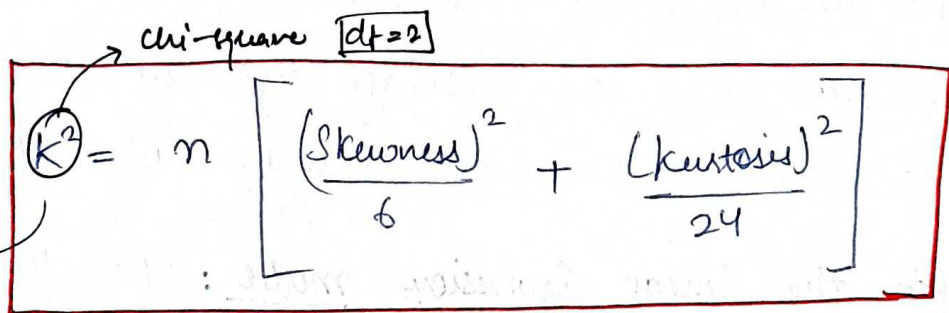 chi-square df=2
K² = n [ (Skewness)² / 6 + (kurtosis)² / 24 ]